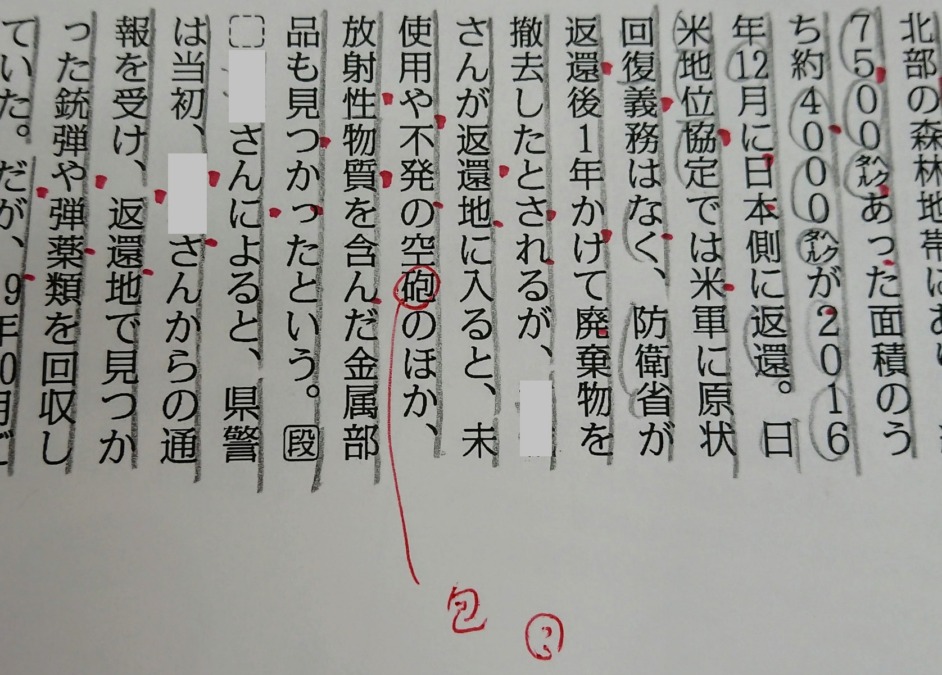 北部の森林地帯にあ
7500㌶あった面積のう
ち約4000㌶が2016
年12月に日本側に返還。日
米地位協定では米軍に原状
回復義務はなく、防衛省が
返還後1年かけて廃棄物を
撤去したとされるが、
さんが返還地に入ると、未
使用や不発の空砲のほか、
放射性物質を含んだ金属部
品も見つかったという。段
さんによると、県警
は当初、さんからの通
報を受け、返還地で見つか
った銃弾や弾薬類を回収し
ていた。だが、9年0月ご
包
?